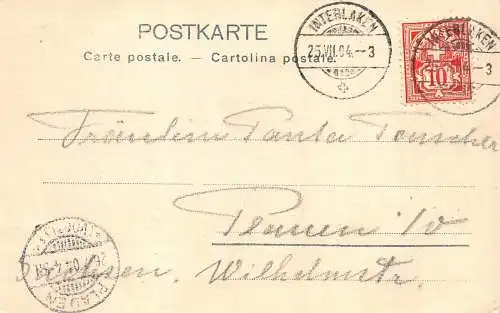 POSTKARTE
Carte postale. — Cartolina postale.
INTERLAKEN
25.VII.04.-3
INTERLAKEN
10
Fräulein
Plauen i/V
Sachsen. Wilhelmstr.
PLAUEN